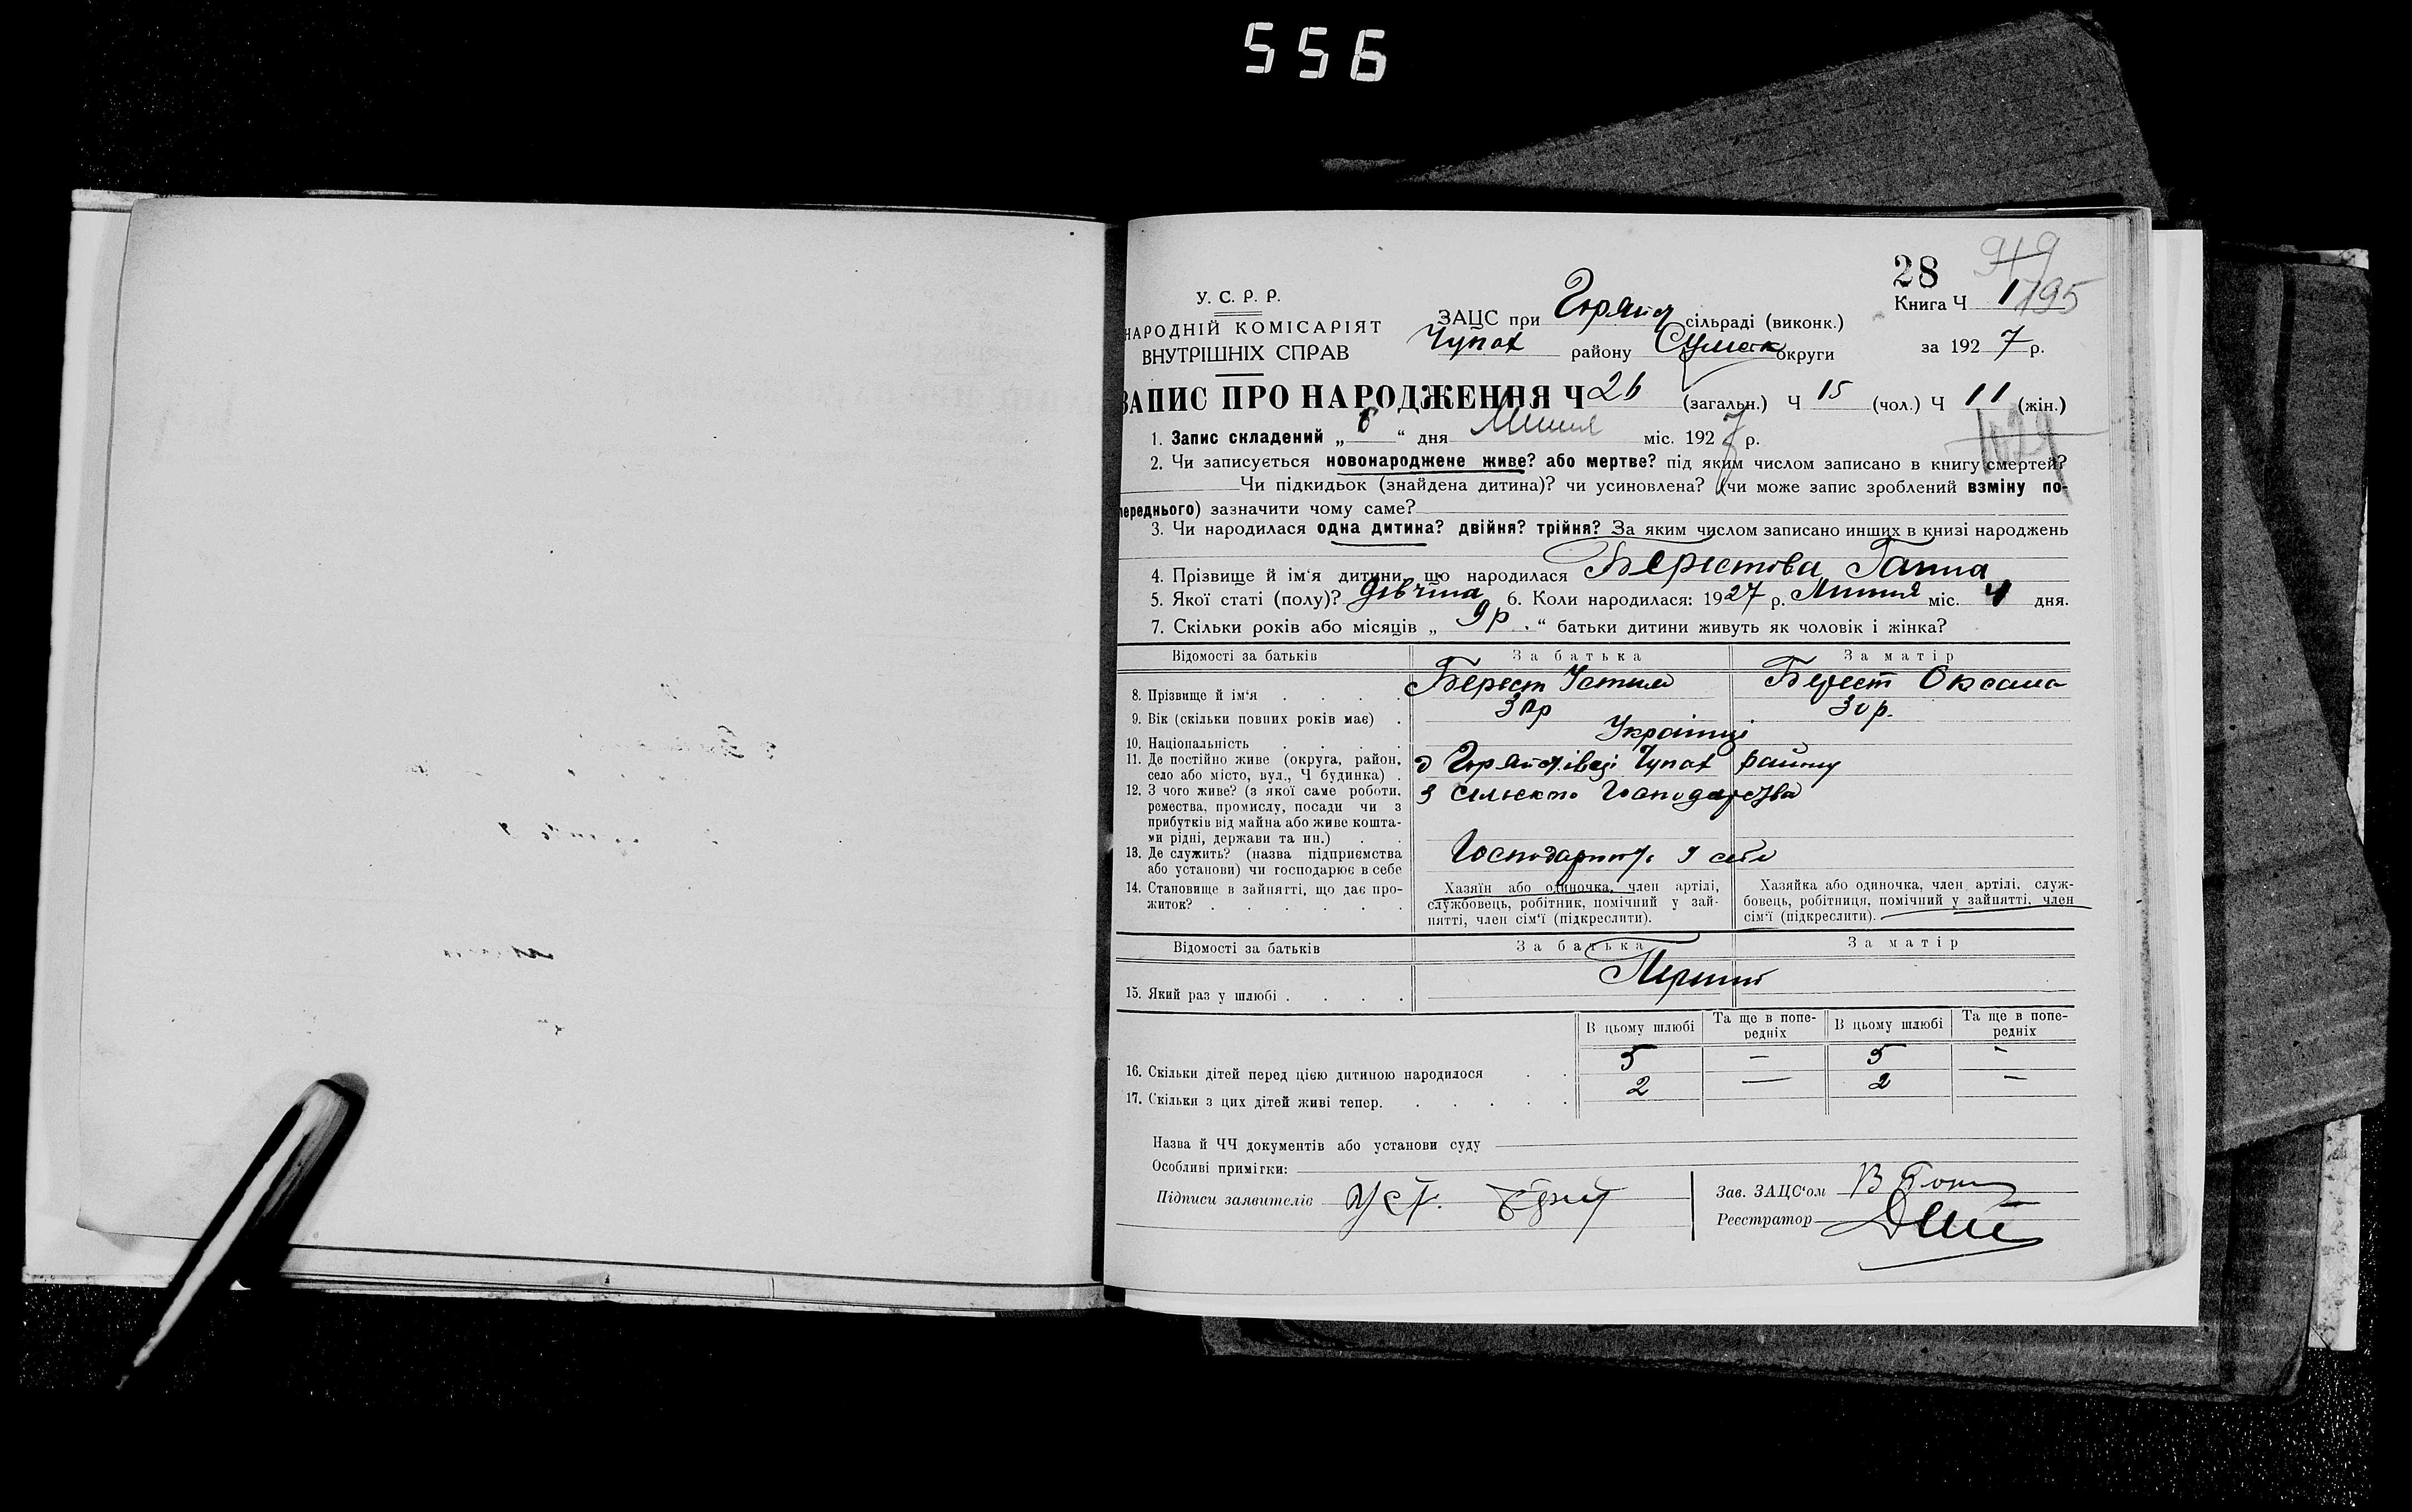 556
28
949
Книга Ч 1
195
У. С. Р. Р.
НАРОДНІЙ КОМІСАРІЯТ
ВНУТРІШНІХ СПРАВ
ЗАЦС при сільраді (виконк.)
Чупах району Сумськ округи
за 192 7 р.
ЗАПИС ПРО НАРОДЖЕННЯ Ч 26 (загальн.) Ч 15 (чол.) Ч 11 (жін.)
1029
1. Запис складений „ 6 “ дня Липня міс. 192 7 р.
2. Чи записується новонароджене живе? або мертве? під яким числом записано в книгу смертей?
Чи підкидьок (знайдена дитина)? чи усиновлена? (чи може запис зроблений взміну по-
переднього) зазначити чому саме?
3. Чи народилася одна дитина? двійня? трійня? За яким числом записано инших в книзі народжень
4. Прізвище й ім‘я дитини, що народилася Берестова Ганна
5. Якої статі (полу)? Дівчина 6. Коли народилася: 1927 р. Липня міс. 4 дня.
7. Скільки років або місяців „ 9р. “ батьки дитини живуть як чоловік і жінка?
Відомості за батьків За батька За матір
8. Прізвище й ім‘я . . . . Берест Устим Берест Оксана
9. Вік (скільки повних років має) . 30р 30р.
10. Національність . . . . Українці
11. Де постійно живе (округа, район, Чупах району
село або місто, вул., Ч будинка) .
12. З чого живе? (з якої саме роботи, З сільського Господарства
ремества, промислу, посади чи з
прибутків від майна або живе кошта-
ми рідні, держави та ин.) . .
13. Де служить? (назва підприємства
або установи) чи господарює в себе Господарюють у себе
14. Становище в зайнятті, що дає про- Хазяїн або одиночка, член артілі, Хазяйка або одиночка, член артілі, служ-
житок? . . . . . . службовець, робітник, помічний у зай- бовець, робітниця, помічний у зайнятті, член
нятті, член сім‘ї (підкреслити). сім‘ї (підкреслити).
Відомості за батьків За батька За матір
15. Який раз у шлюбі . . . . Перший
В цьому шлюбі Та ще в попе- В цьому шлюбі Та ще в попе-
редніх редніх
16. Скільки дітей перед цією дитиною народилося . . 5 — 5 —
17. Скільки з цих дітей живі тепер. . . . . . 2 — 2 —
Назва й ЧЧ документів або установи суду
Особливі примітки:
Підписи заявителів Уст.
Зав. ЗАЦС‘ом
Реєстратор